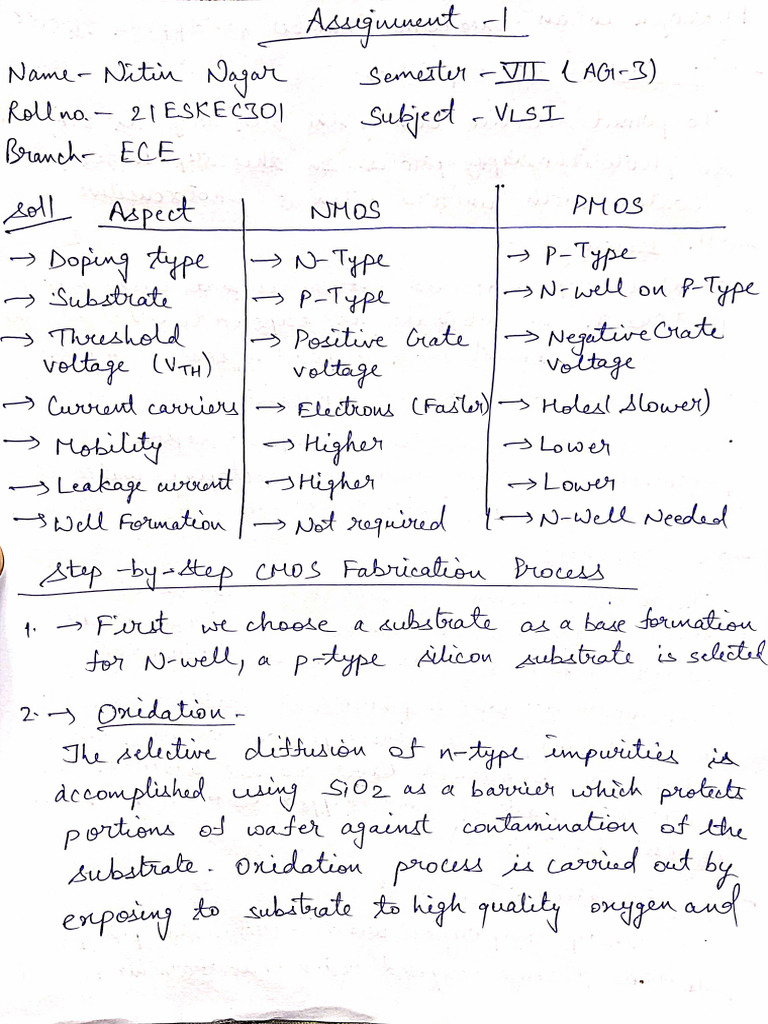 Assignment - 1
Name - Nitin Nagar Semester - VII (AG-3)
Roll no. - 21ESKEC301 Subject - VLSI
Branch - ECE
Soll Aspect NMOS PMOS
→ Doping type → N-Type → P-Type
→ Substrate → P-Type → N-well on P-Type
→ Threshold → Positive Gate → Negative Gate
voltage (VTH) voltage Voltage
→ Current carriers → Electrons (Faster) → Holes (Slower)
→ Mobility → Higher → Lower
→ Leakage current → Higher → Lower
→ Well Formation → Not required → N-Well Needed
Step-by-step CMOS Fabrication Process
1. → First we choose a substrate as a base formation
for N-well, a p-type silicon substrate is selected
2. → Oxidation -
The selective diffusion of n-type impurities is
accomplished using SiO2 as a barrier which protects
portions of wafer against contamination of the
substrate. Oxidation process is carried out by
exposing to substrate to high quality oxygen and